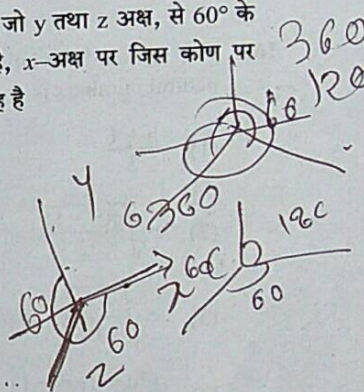 जो y तथा z अक्ष, से 60° के
, x–अक्ष पर जिस कोण पर
है
360
120
60
y
6360
180
60
60
x
60
60
z